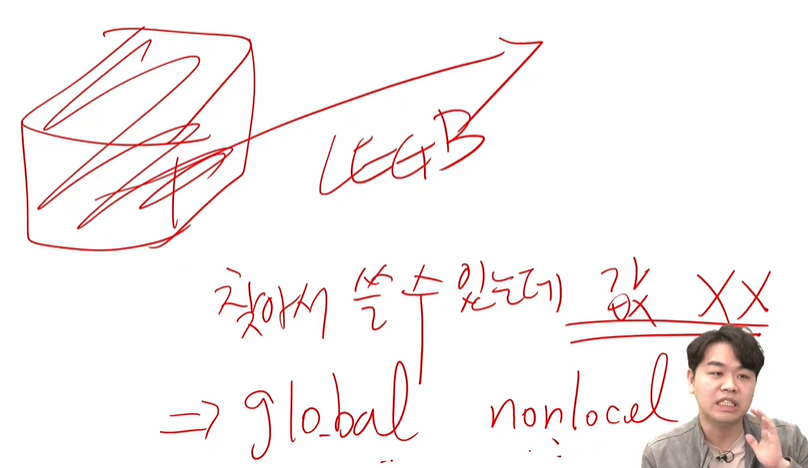 LEGB
찾아서 쓸 수 있는데 값 XX
⇒ global nonlocal